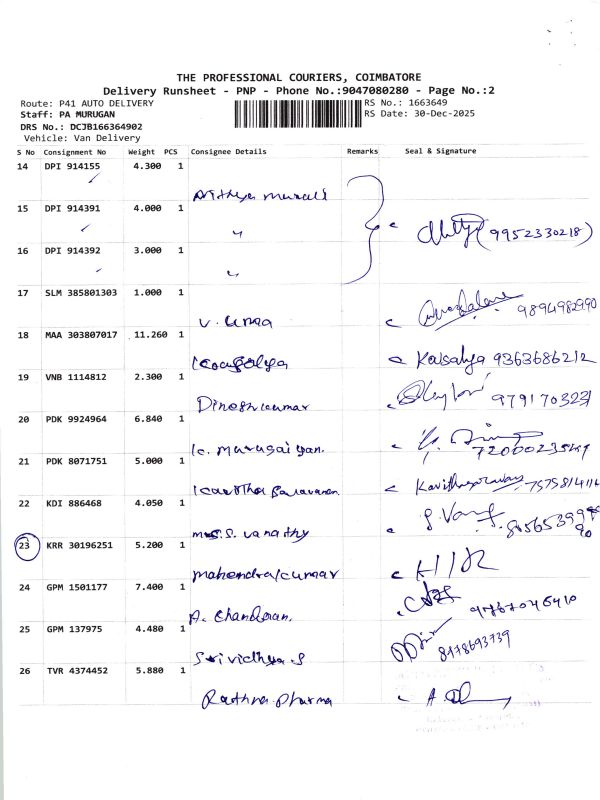 THE PROFESSIONAL COURIERS, COIMBATORE
Delivery Runsheet - PNP - Phone No.:9047080280 - Page No.:2
Route: P41 AUTO DELIVERY RS No.: 1663649
Staff: PA MURUGAN RS Date: 30-Dec-2025
DRS No.: DCJB166364902
Vehicle: Van Delivery
S No Consignment No Weight PCS Consignee Details Remarks Seal & Signature
14 DPI 914155 4.300 1
Nithya Murali
15 DPI 914391 4.000 1
"
(9952330218)
16 DPI 914392 3.000 1
"
17 SLM 385801303 1.000 1
V. Uma 9894982990
18 MAA 303807017 11.260 1
Kousalya Kosalya 9363686212
19 VNB 1114812 2.300 1
Dineshkumar
20 PDK 9924964 6.840 1
K. Murugaiyan.
21 PDK 8071751 5.000 1
Kavitha Saravanan
22 KDI 886468 4.050 1
S. Vanathy
23 KRR 30196251 5.200 1
Mahendrakumar
24 GPM 1501177 7.400 1
A. Chandran.
25 GPM 137975 4.480 1
Srividhya S 8178693739
26 TVR 4374452 5.880 1
Rathna Pharma